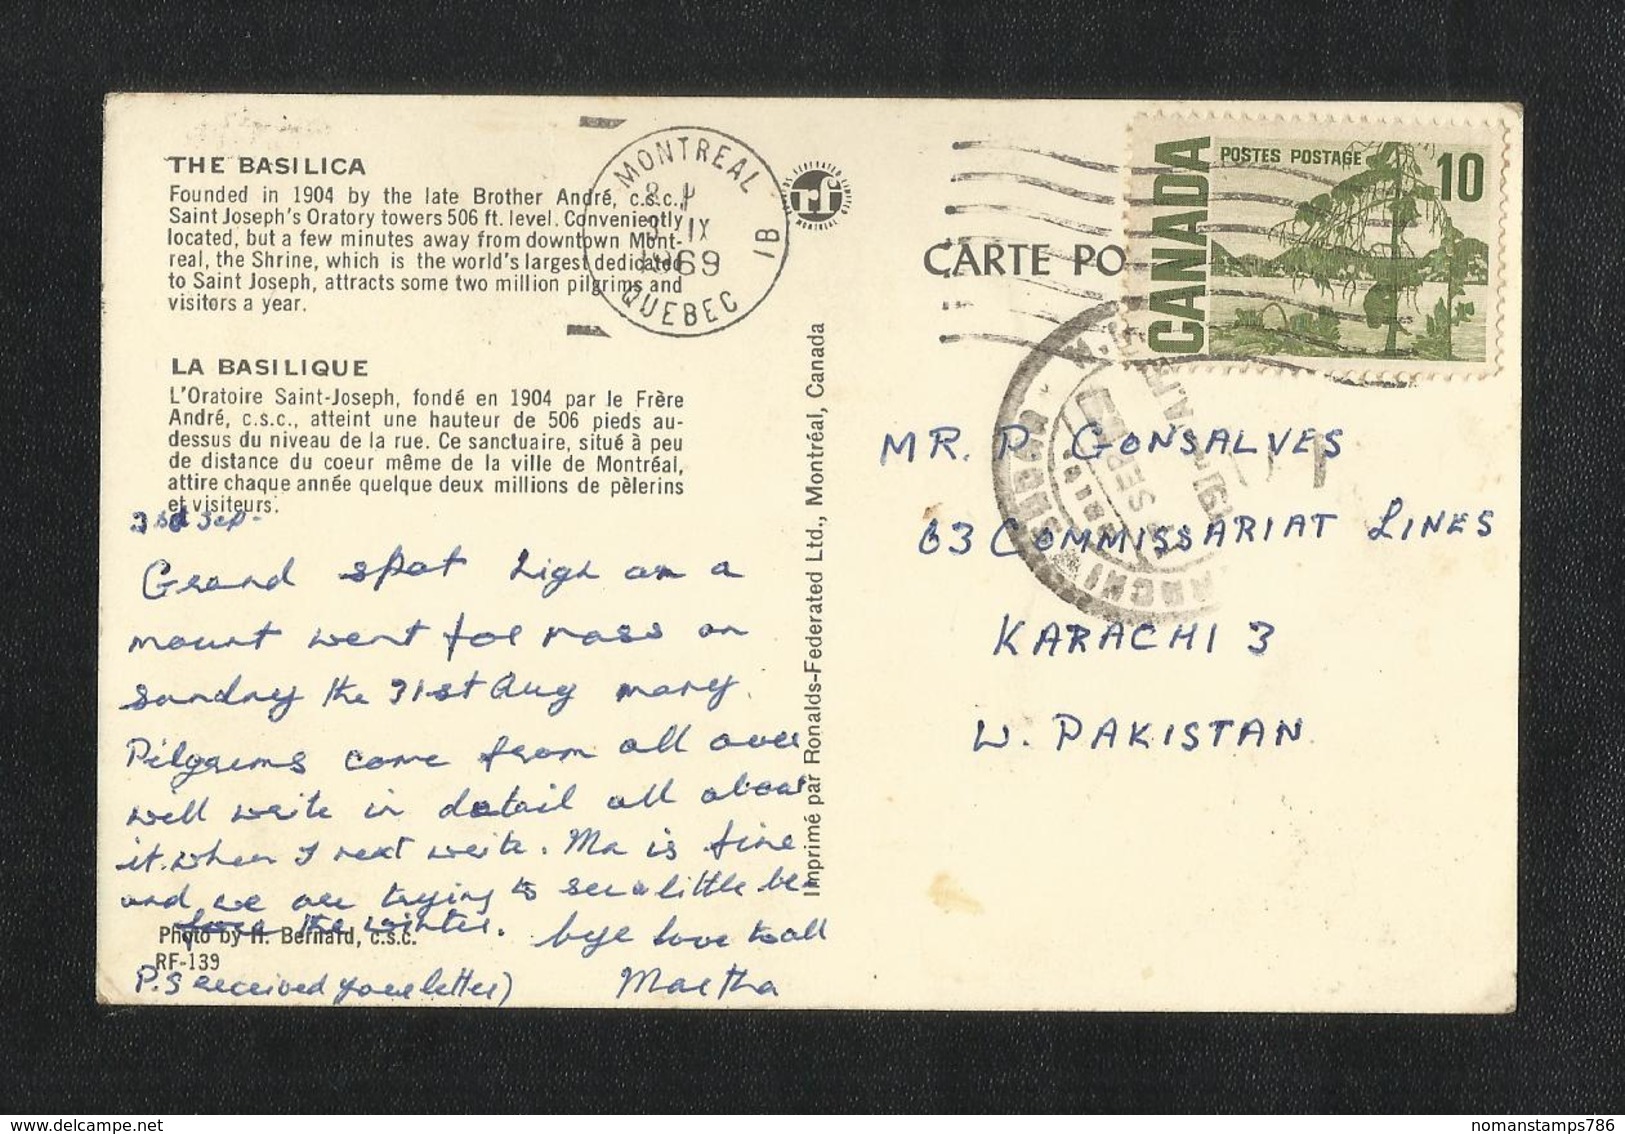 THE BASILICA
Founded in 1904 by the late Brother André, c.s.c.,
Saint Joseph's Oratory towers 506 ft. level. Conveniently
located, but a few minutes away from downtown Mont-
real, the Shrine, which is the world's largest dedicated
to Saint Joseph, attracts some two million pilgrims and
visitors a year.
LA BASILIQUE
L'Oratoire Saint-Joseph, fondé en 1904 par le Frère
André, c.s.c., atteint une hauteur de 506 pieds au-
dessus du niveau de la rue. Ce sanctuaire, situé à peu
de distance du coeur même de la ville de Montréal,
attire chaque année quelque deux millions de pèlerins
et visiteurs.
3rd Sep-
Grand spot high on a
mount went for mass on
sunday the 31st Aug many
Pilgrims come from all over
will write in detail all about
it when I next write. Ma is fine
and we are trying to see a little be-
fore the winter. bye love to all
Photo by H. Bernard, c.s.c.
RF-139
P.S received your letter)
Martha
MONTREAL
IX
1969
QUEBEC
1B
rf
MONTREAL
Imprimé par Ronalds-Federated Ltd., Montréal, Canada
CARTE PO
CANADA
POSTES POSTAGE
10
KARACHI
SEP
MR. P. GONSALVES
63 COMMISSARIAT LINES
KARACHI 3
W. PAKISTAN
delcampe.net
nomanstamps786